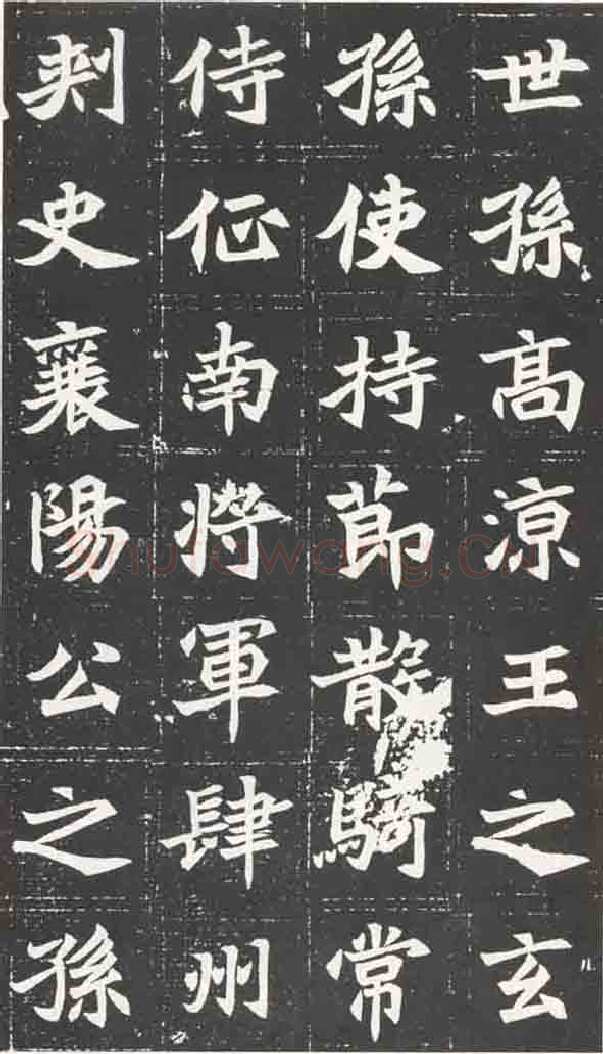 世孫髙涼王之玄
孫使持節散騎常
侍征南將軍肆州
刺史襄陽公之孫
Shufawang.Cn